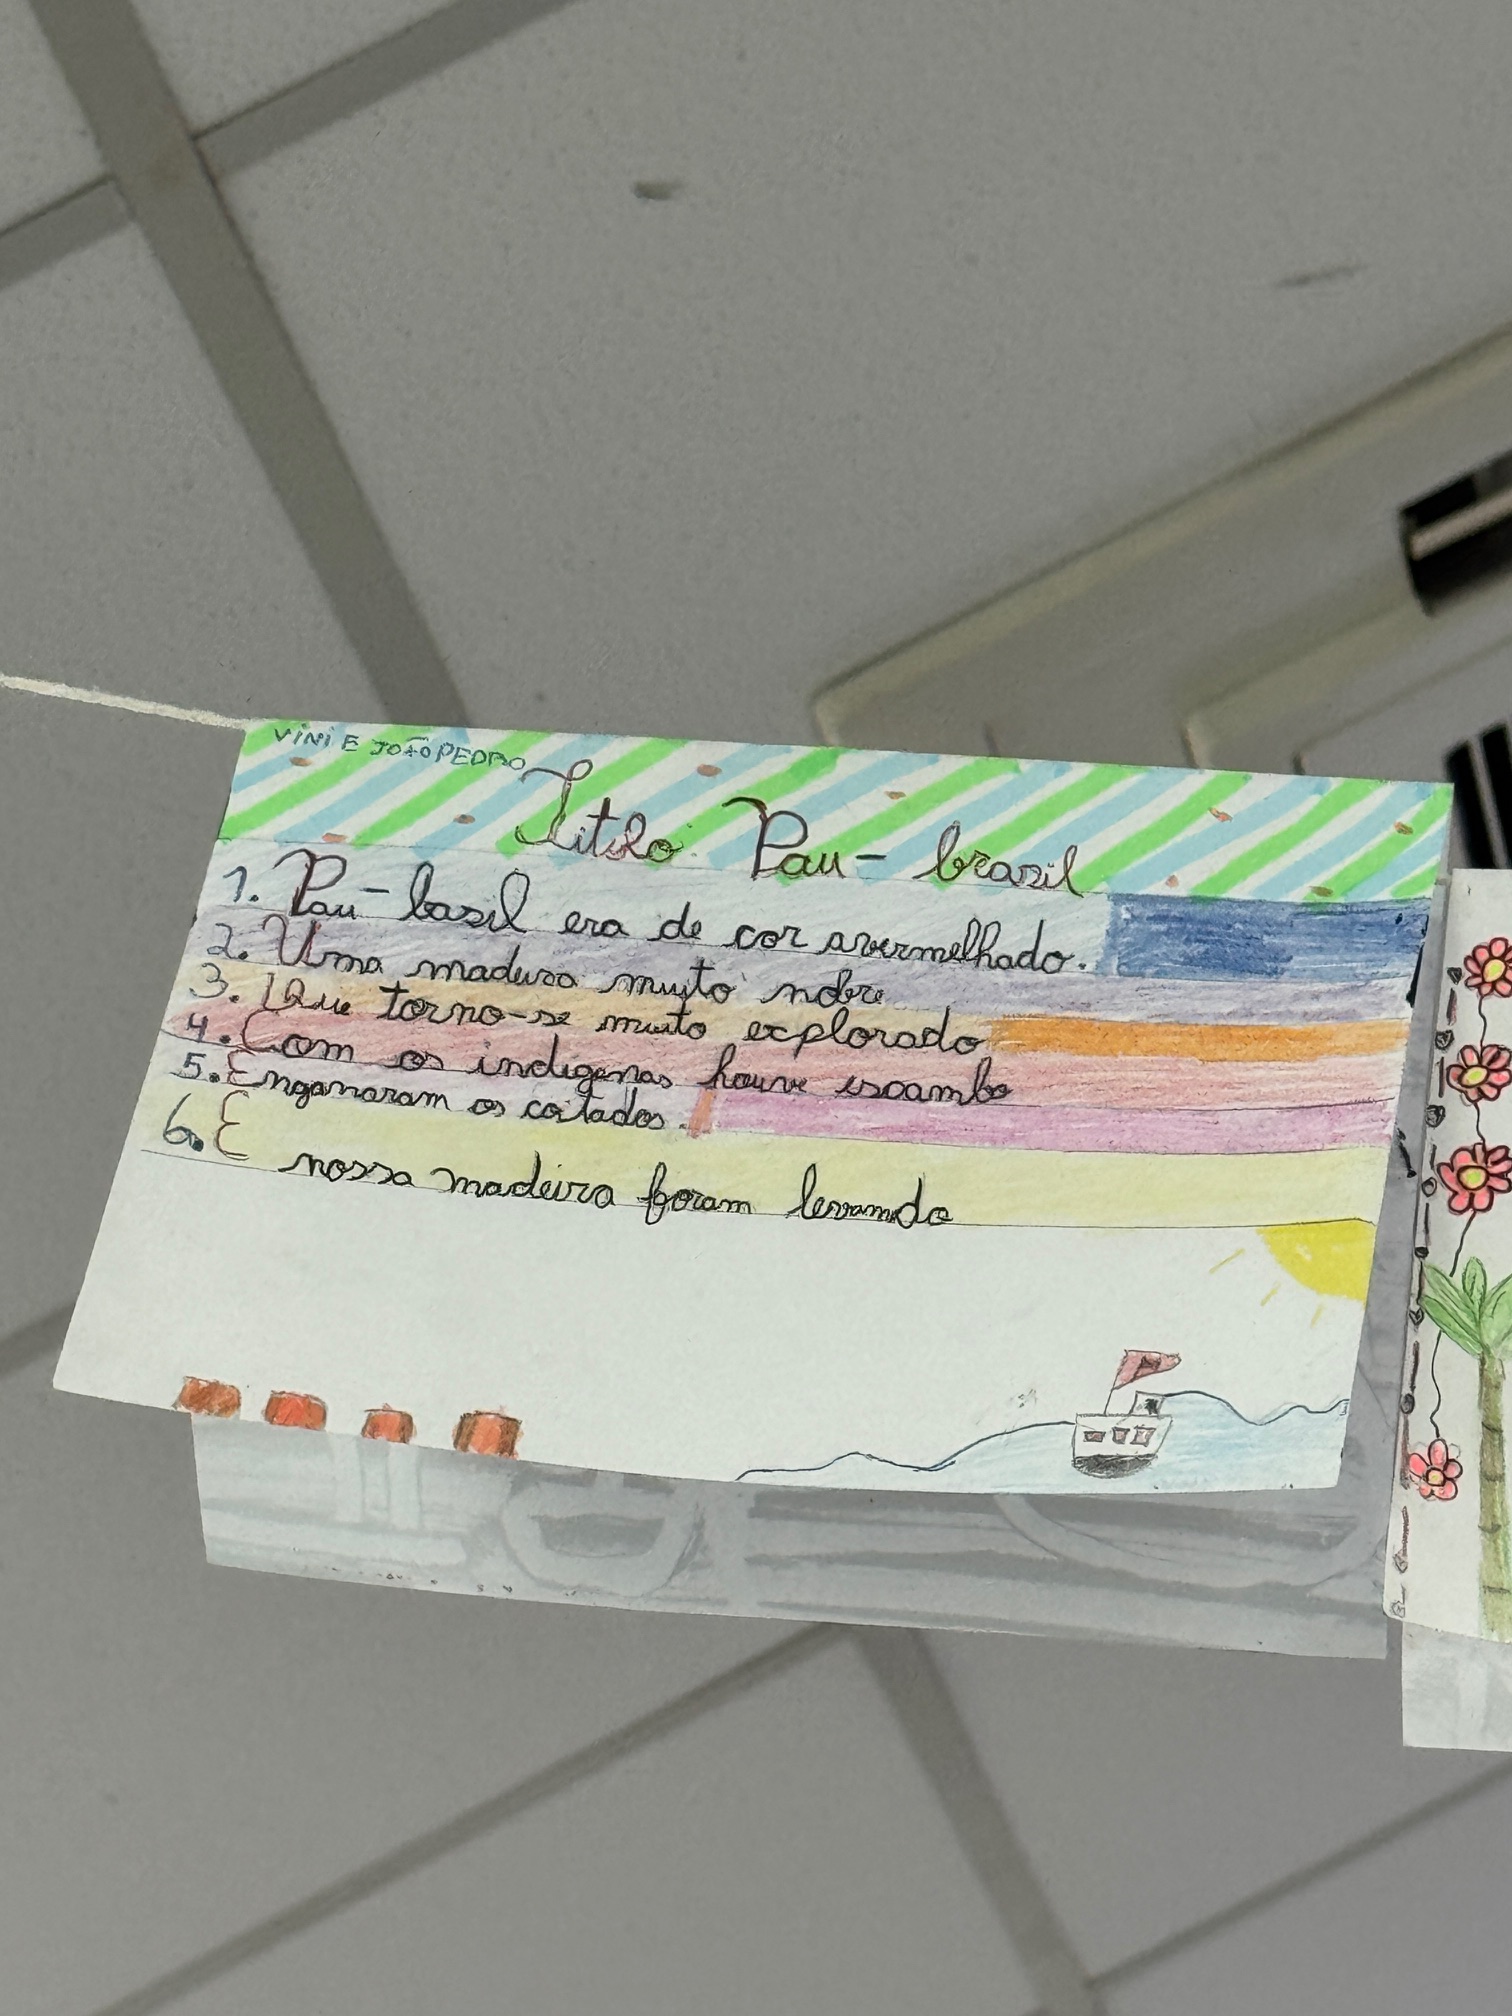 VINI E JOÃO PEDRO
Titolo Pau-brasil
1. Pau-basil era de cor avermelhado.
2. Uma madeira muito nobre
3. Que torno-se muito explorado
4. Com os indígenas houve escambo
5. Enganaram os coitados.
6. E nossa madeira foram levando